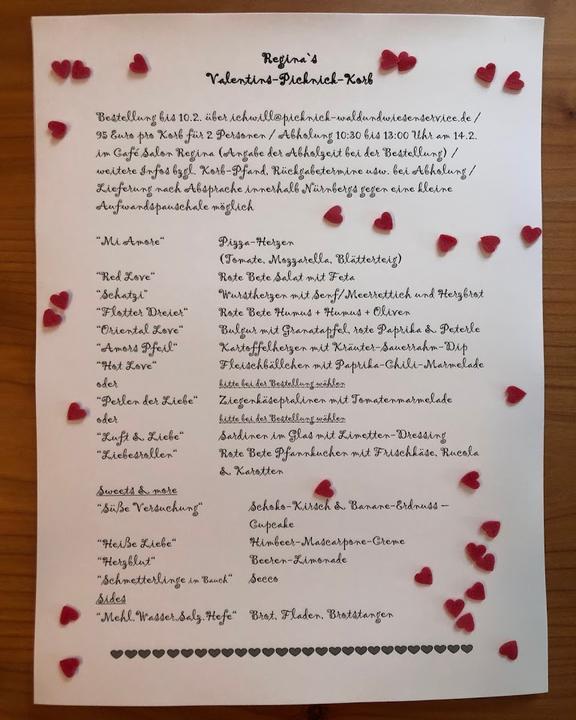 Regina`s
Valentins-Picknick-Korb
Bestellung bis 10.2. über ichwill@picknick-waldundwiesenservice.de /
95 Euro pro Korb für 2 Personen / Abholung 10:30 bis 13:00 Uhr am 14.2.
im Café Salon Regina (Angabe der Abholzeit bei der Bestellung) /
weitere Infos bzgl. Korb-Pfand, Rückgabetermine usw. bei Abholung /
Lieferung nach Absprache innerhalb Nürnbergs gegen eine kleine
Aufwandspauschale möglich
"Mi Amore" Pizza-Herzen
(Tomate, Mozzarella, Blätterteig)
"Red Love" Rote Bete Salat mit Feta
"Schatzi" Wurstherzen mit Senf/Meerrettich und Herzbrot
"Flotter Dreier" Rote Bete Humus + Humus + Oliven
"Oriental Love" Bulgur mit Granatapfel, rote Paprika & Peterle
"Amors Pfeil" Kartoffelherzen mit Kräuter-Sauerrahm-Dip
"Hot Love" Fleischbällchen mit Paprika-Chili-Marmelade
oder bitte bei der Bestellung wählen
"Perlen der Liebe" Ziegenkäsepralinen mit Tomatenmarmelade
oder bitte bei der Bestellung wählen
"Luft & Liebe" Sardinen im Glas mit Limetten-Dressing
"Liebesrollen" Rote Bete Pfannkuchen mit Frischkäse, Rucola
& Karotten
Sweets & more
"Süße Versuchung" Schoko-Kirsch & Banane-Erdnuss –
Cupcake
"Heiße Liebe" Himbeer-Mascarpone-Creme
"Herzblut" Beeren-Limonade
"Schmetterlinge in Bauch" Secco
Sides
"Mehl.Wasser.Salz.Hefe" Brot, Fladen, Brotstangen